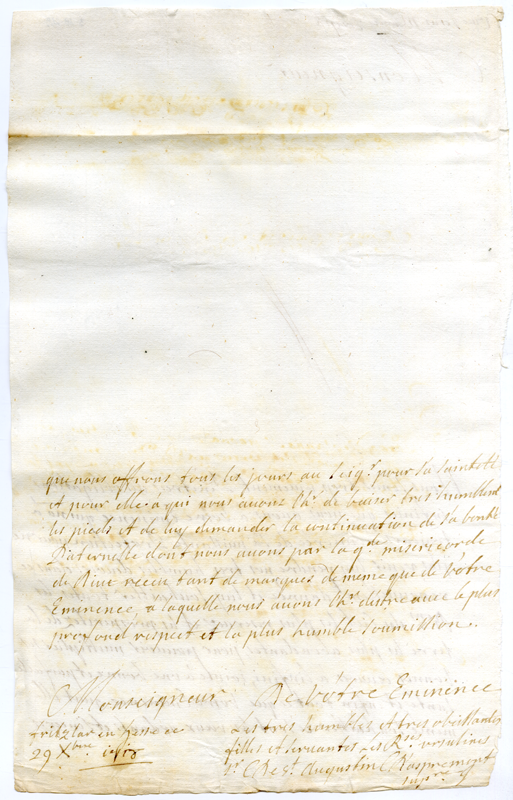 que nous offrons tous les jours au Seigr. pour sa sainteté
et pour elle à qui nous avons lhr. de baiser tres humblemt
les pieds et de luy demander la continuation de sa bonté
Paternelle dont nous avons par la gre. misericorde
de Dieu recu tant de marques de meme que de Vôtre
Eminence, à laquelle nous avons lhr. distre avec le plus
profond respect et la plus humble soumission.
Monseigneur De Vôtre Eminence
fritzlar en hesse ce
29 Xbre
Les tres humbles et tres obeissantes
filles et servantes Les Rses ursulines
Sr. C De St. Augustin
supre